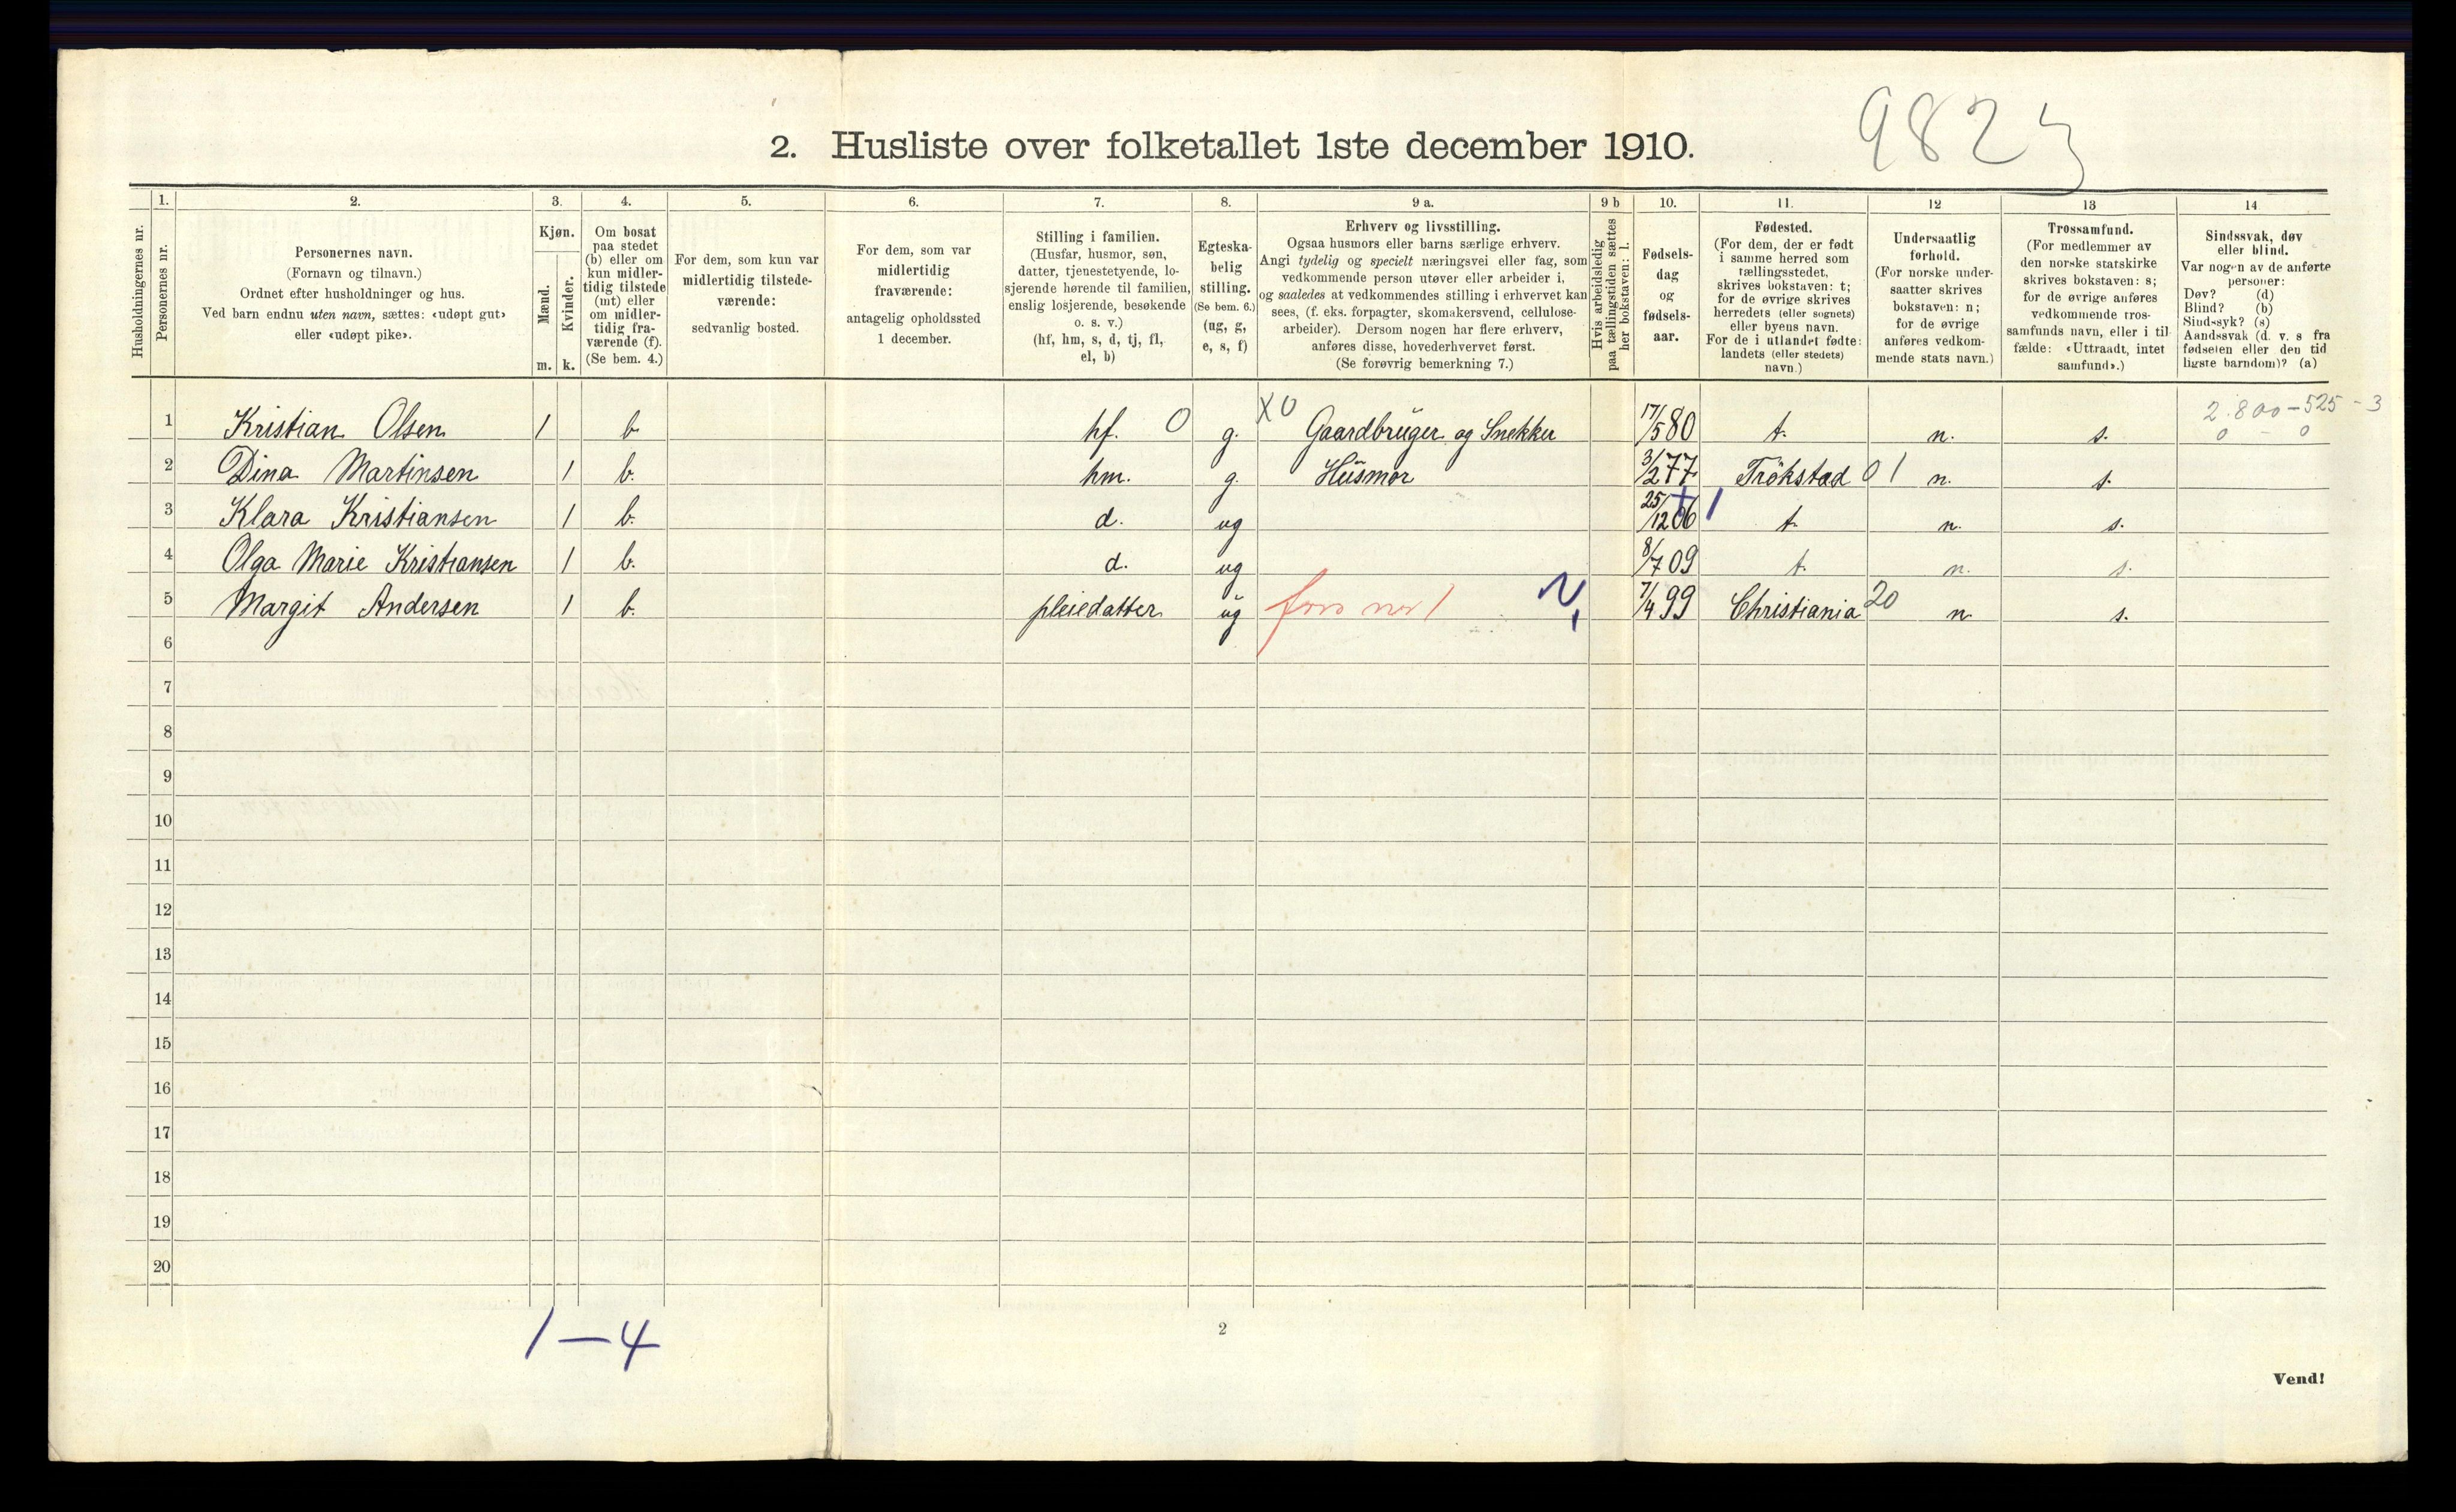 9823
2. Husliste over folketallet 1ste december 1910.
Husholdningernes nr.
1.
Personernes nr.
2.
Personernes navn.
(Fornavn og tilnavn.)
Ordnet efter husholdninger og hus.
Ved barn endnu uten navn, sættes: «udøpt gut»
eller «udøpt pike».
3.
Kjøn.
Mænd.
Kvinder.
m.
k.
4.
Om bosat
paa stedet
(b) eller om
kun midler-
tidig tilstede
(mt) eller
om midler-
tidig fra-
værende (f).
(Se bem. 4.)
5.
For dem, som kun var
midlertidig tilstede-
værende:
sedvanlig bosted.
6.
For dem, som var
midlertidig
fraværende:
antagelig opholdssted
1 december.
7.
Stilling i familien.
(Husfar, husmor, søn,
datter, tjenestetyende, lo-
sjerende hørende til familien,
enslig losjerende, besøkende
o. s. v.)
(hf, hm, s, d, tj, fl,
el, b)
8.
Egteska-
belig
stilling.
(Se bem. 6.)
(ug, g,
e, s, f)
9 a.
Erhverv og livsstilling.
Ogsaa husmors eller barns særlige erhverv.
Angi tydelig og specielt næringsvei eller fag, som
vedkommende person utøver eller arbeider i,
og saaledes at vedkommendes stilling i erhvervet kan
sees, (f. eks. forpagter, skomakersvend, cellulose-
arbeider). Dersom nogen har flere erhverv,
anføres disse, hovederhvervet først.
(Se forøvrig bemerkning 7.)
9 b
Hvis arbeidsledig
paa tællingstiden sættes
her bokstaven: l.
10.
Fødsels-
dag
og
fødsels-
aar.
11.
Fødested.
(For dem, der er født
i samme herred som
tællingsstedet,
skrives bokstaven: t;
for de øvrige skrives
herredets (eller sognets)
eller byens navn.
For de i utlandet fødte:
landets (eller stedets)
navn.)
12
Undersaatlig
forhold.
(For norske under-
saatter skrives
bokstaven: n;
for de øvrige
anføres vedkom-
mende stats navn.)
13
Trossamfund.
(For medlemmer av
den norske statskirke
skrives bokstaven: s;
for de øvrige anføres
vedkommende tros-
samfunds navn, eller i til-
fælde: «Uttraadt, intet
samfund».)
14
Sindssvak, døv
eller blind.
Var nogen av de anførte
personer:
Døv? (d)
Blind? (b)
Sindssyk? (s)
Aandssvak (d. v. s fra
fødselen eller den tid
ligste barndom)? (a)
1 Kristian Olsen 1 b. hf. 0 g. X0 Gaardbrüger og Snekker 17/5 80 t. n. s. 2.800-525-3
0 - 0
2 Dina Martinsen 1 b. hm. g. Hüsmor 3/2 77 Trökstad 01 n. s.
3 Klara Kristiansen 1 b. d. ug 25/12 06 1 t. n. s.
4 Olga Marie Kristiansen 1 b. d. ug 8/7 09 t. n. s.
5 Margit Andersen 1 b. pleiedatter ug 7/4 99 Christiania 20 n. s.
6
7
8
9
10
11
12
13
14
15
16
17
18
19
20
1-4
2
Vend!